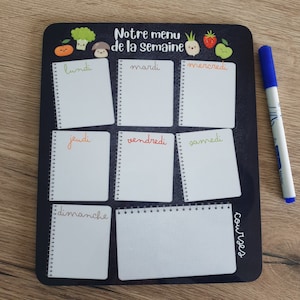 Notre menu
de la semaine
lundi
mardi
mercredi
jeudi
vendredi
samedi
dimanche
courses